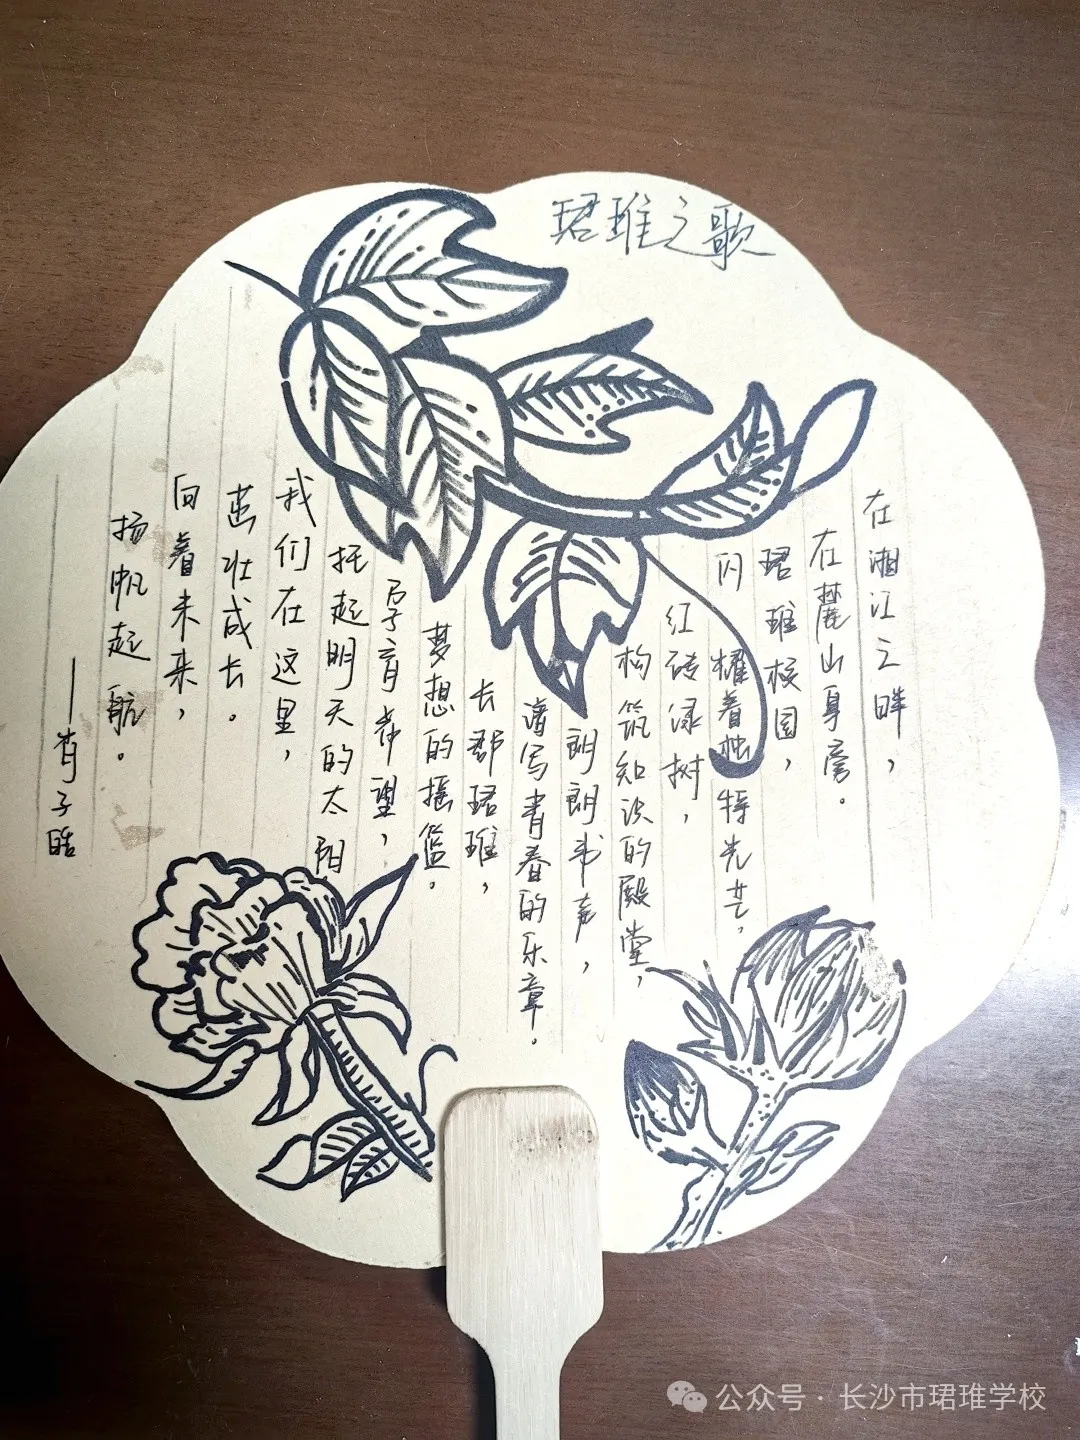 珺琟之歌
在湘江之畔，
在麓山身旁。
珺琟校园，
闪耀着独特光芒，
红砖绿树，
构筑知识的殿堂，
朗朗书声，
谱写青春的乐章。
长郡珺琟，
梦想的摇篮。
孕育希望，
托起明天的太阳
我们在这里，
茁壮成长。
向着未来，
扬帆起航。
——肖子皓
公众号·长沙市珺琟学校